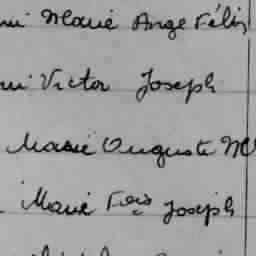 Marie Ange Félix
Victor Joseph
Marie Auguste M
Marie Fcois Joseph